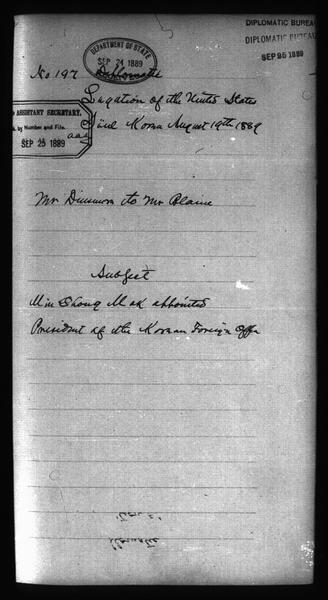 DEPARTMENT OF STATE
SEP 24 1889
DIPLOMATIC BUREAU
DIPLOMATIC BUREAU
SEP 25 1889
No 197 Diplomatic
Legation of the United States
ASSISTANT SECRETARY.
by Number and File.
SEP 25 1889
Söul Korea August 19th 1889
Mr Dinsmore to Mr Blaine
Subject
Min Chong Mok appointed
President of the Korean Foreign Office